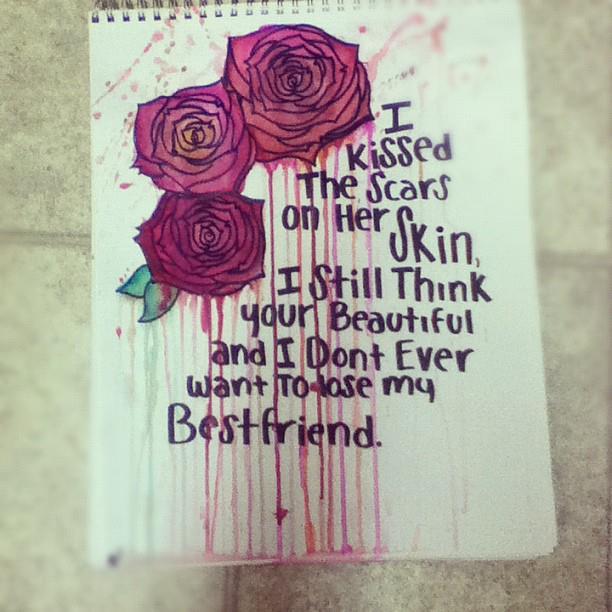 I
Kissed
The Scars
on Her Skin,
I Still Think
your Beautiful
and I Dont Ever
want To lose my
Bestfriend.